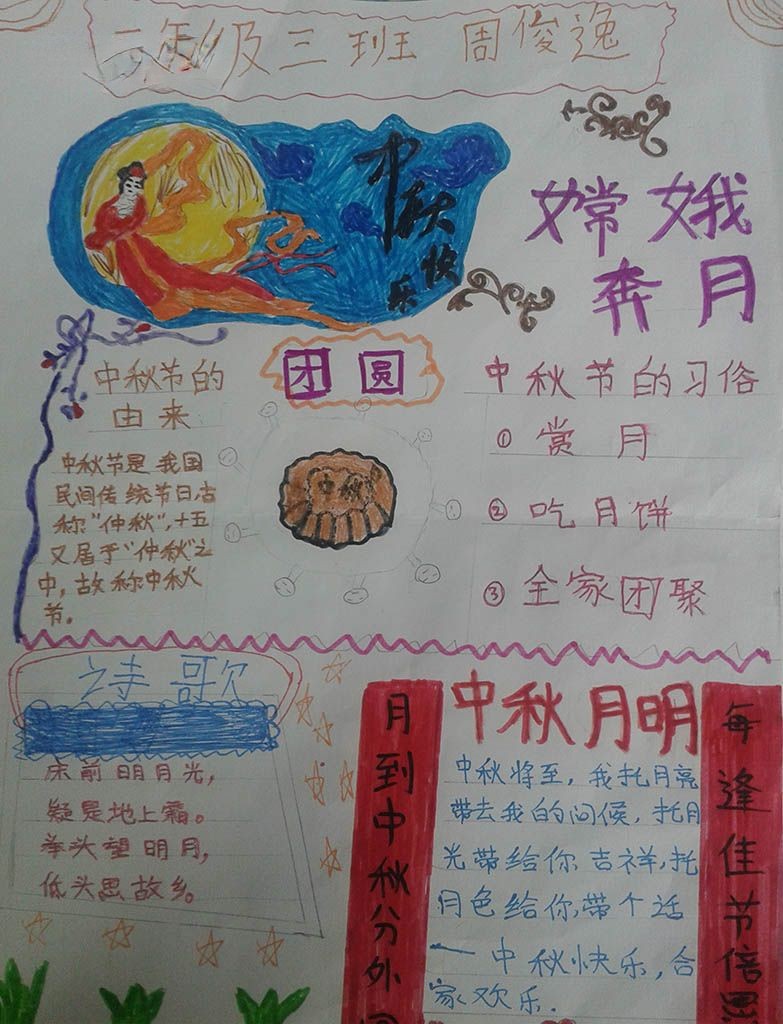 二年级三班 周俊逸
中秋快乐
嫦娥
奔月
中秋节的
由来
中秋节是我国
民间传统节日,古
称"仲秋",十五
又居于"仲秋"之
中,故称中秋
节。
团圆
中秋
中秋节的习俗
①赏月
②吃月饼
③全家团聚
诗歌
床前明月光,
疑是地上霜。
举头望明月,
低头思故乡。
月到中秋分外
中秋月明
中秋将至,我托月亮
带去我的问候,托月
光带给你吉祥,托
月色给你带个话
一中秋快乐,合
家欢乐.
每逢佳节倍